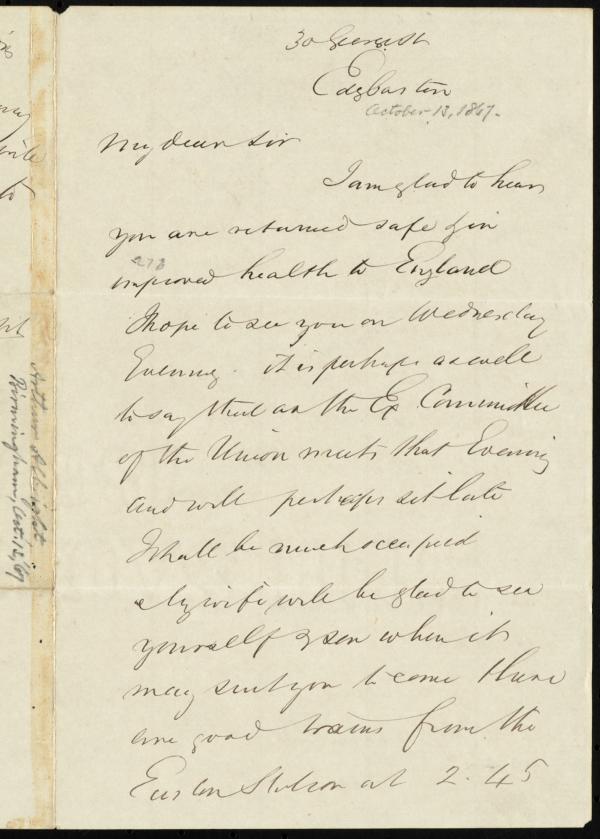 30 George St
Edgbaston
October 13, 1867.
My dear Sir
I am glad to hear
you are returned safe & in
273
improved health to England
I hope to see you on Wednesday
Evening. it is perhaps as well
to say that as the Ex Committee
of the Union meets that Evening
and will perhaps sit late
I shall be much occupied
My wife will be glad to see
yourself & son when it
may suit you to come there
are good trains from the
Euston Station at 2.45
Arthur Albright
Birmingham, Oct. 13/67